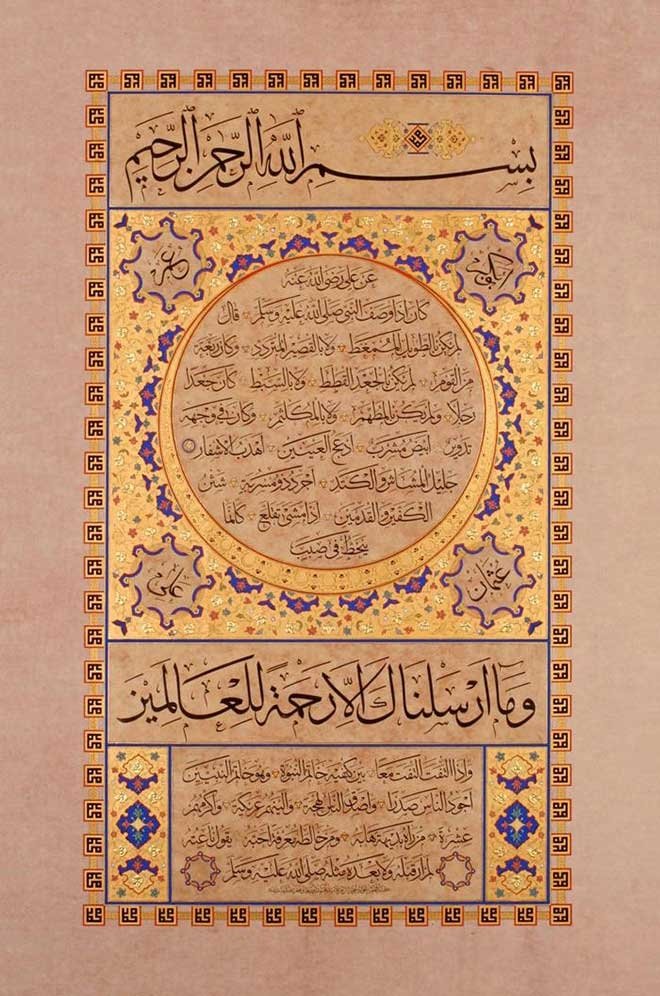 بسم الله الرحمن الرحيم
ابوبكر
عمر
عن علي رضي الله عنه
كان اذا وصف النبي صلى الله عليه وسلم قال
لم يكن بالطويل الممغط ولا بالقصير المتردد وكان ربعة
من القوم لم يكن بالجعد القطط ولا بالسبط كان جعدا
رجلا ولم يكن بالمطهم ولا بالمكلثم وكان في وجهه
تدوير ابيض مشرب ادعج العينين اهدب الاشفار
جليل المشاش والكتد اجرد ذو مسربة شثن
الكفين والقدمين اذا مشى تقلع كانما
ينحط في صبب
عثمان
علي
وما ارسلناك الا رحمة للعالمين
واذا التفت التفت معا بين كتفيه خاتم النبوة وهو خاتم النبيين
اجود الناس صدرا واصدق الناس لهجة والينهم عريكة واكرمهم
عشرة من رآه بديهة هابه ومن خالطه معرفة احبه يقول ناعته
لم ار قبله ولا بعده مثله صلى الله عليه وسلم